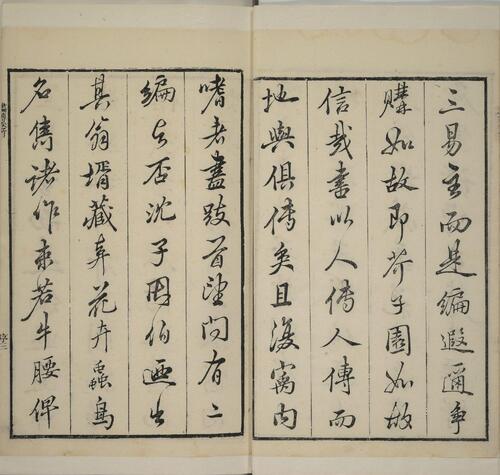 三易主而是編遐邇爭
購如故即芥子園如故
信哉書以人傳人傳而
地與俱傳矣且復寓內
嗜者盡跂首望問有二
編與否沈子因伯迺出
其翁壻藏弆花卉蟲鳥
名雋諸作束若牛腰俾
序三